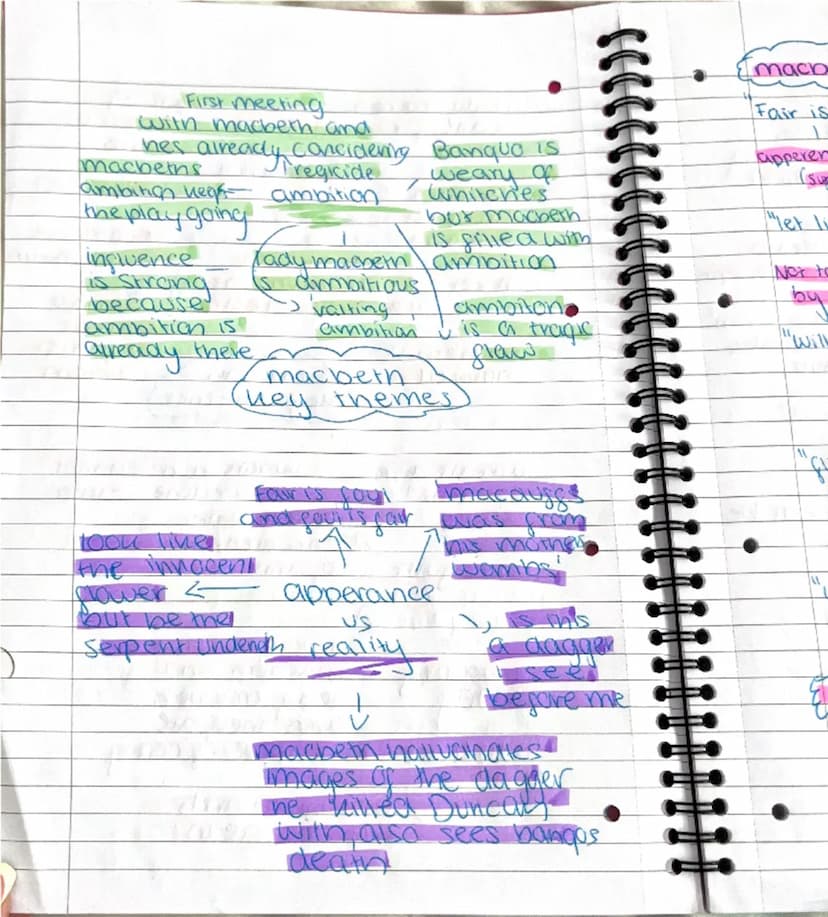 First meeting
with macbeth and
hes already considering
regicide
macbeths
ambition keeps
the play going
ambition
Banquo is
weary of
whitches
but macbeth
is filled with
ambition
influence
is strong
because
ambition is
already there
lady macbeth
is ambitious
valting
ambition
ambition
is a tragic
flaw
macbeth
key themes
Fair is foul
and foul is fair
macduffs
was from
his mother
wombs'
look like
the innocent
flower
but be the
serpent underneth
apperance
vs
reality
is this
a dagger
i see
before me
macbeth hallucinates
images of the dagger
he killed Duncan
with, also sees banqos
death
macb
"Fair is
apperen
"let li
Not to
by
"Will